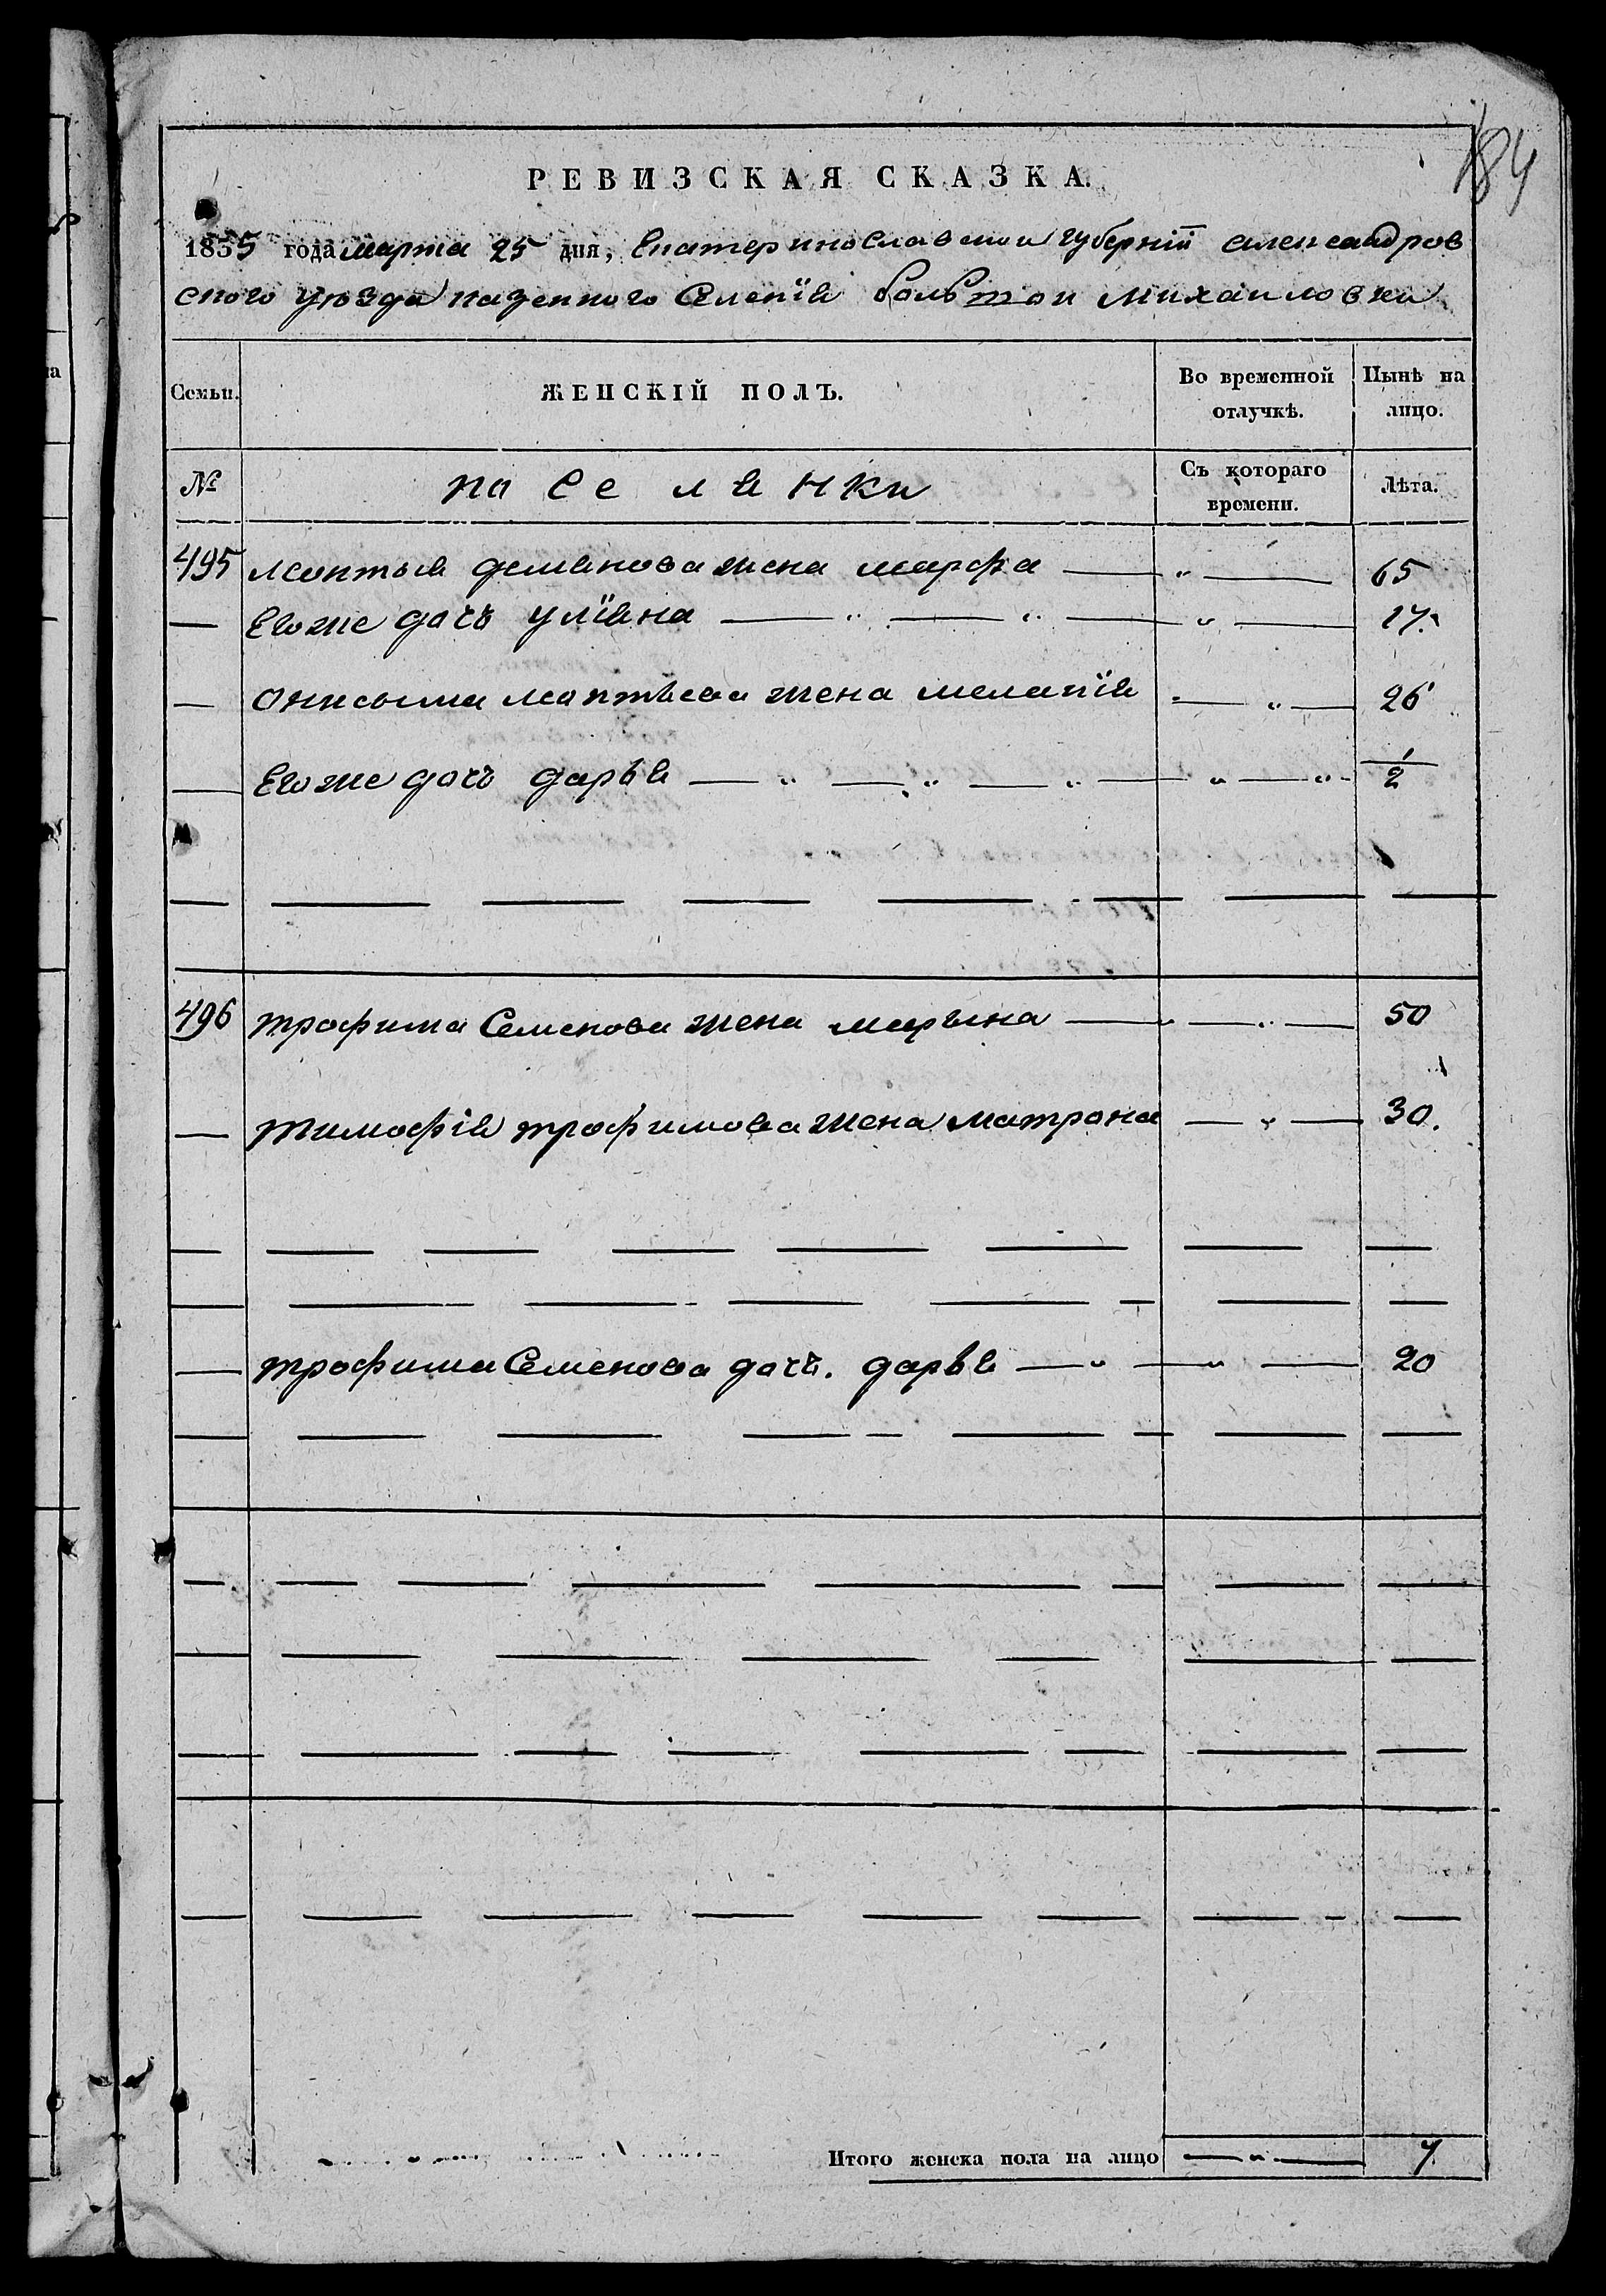 184
РЕВИЗСКАЯ СКАЗКА.
1835 года марта 25 дня, Екатеринославской губерніи александров
ского уѣзда казенного Селенія большой михаиловки
Семьи.
ЖЕНСКІЙ ПОЛЪ.
Во временной отлучкѣ.
Нынѣ на лицо.
№
поселянки
Съ котораго времени.
Лѣта.
495 лаптыя демянова жена марфа — " — 65
— Егоже дочъ уліяна — " — " — " — 17.
— онисыма лаптѣева жена меланія — " — 26
— Егоже дочъ дарья — " — " — " — " — " 1/2
496 трофима Семенова жена марына — " — 50
— тимофія трофимова жена матрона — " — 30.
— трофима Семенова дочъ. дарья — " — " — 20
Итого женска пола на лицо — " — 7